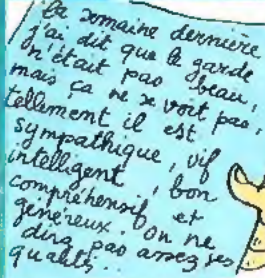 La semaine dernière
j'ai dit que le garde
n'était pas beau,
mais ça ne se voit pas,
tellement il est
sympathique, vif
intelligent, bon
compréhensif et
généreux. On ne
dira pas assez ses
qualités...